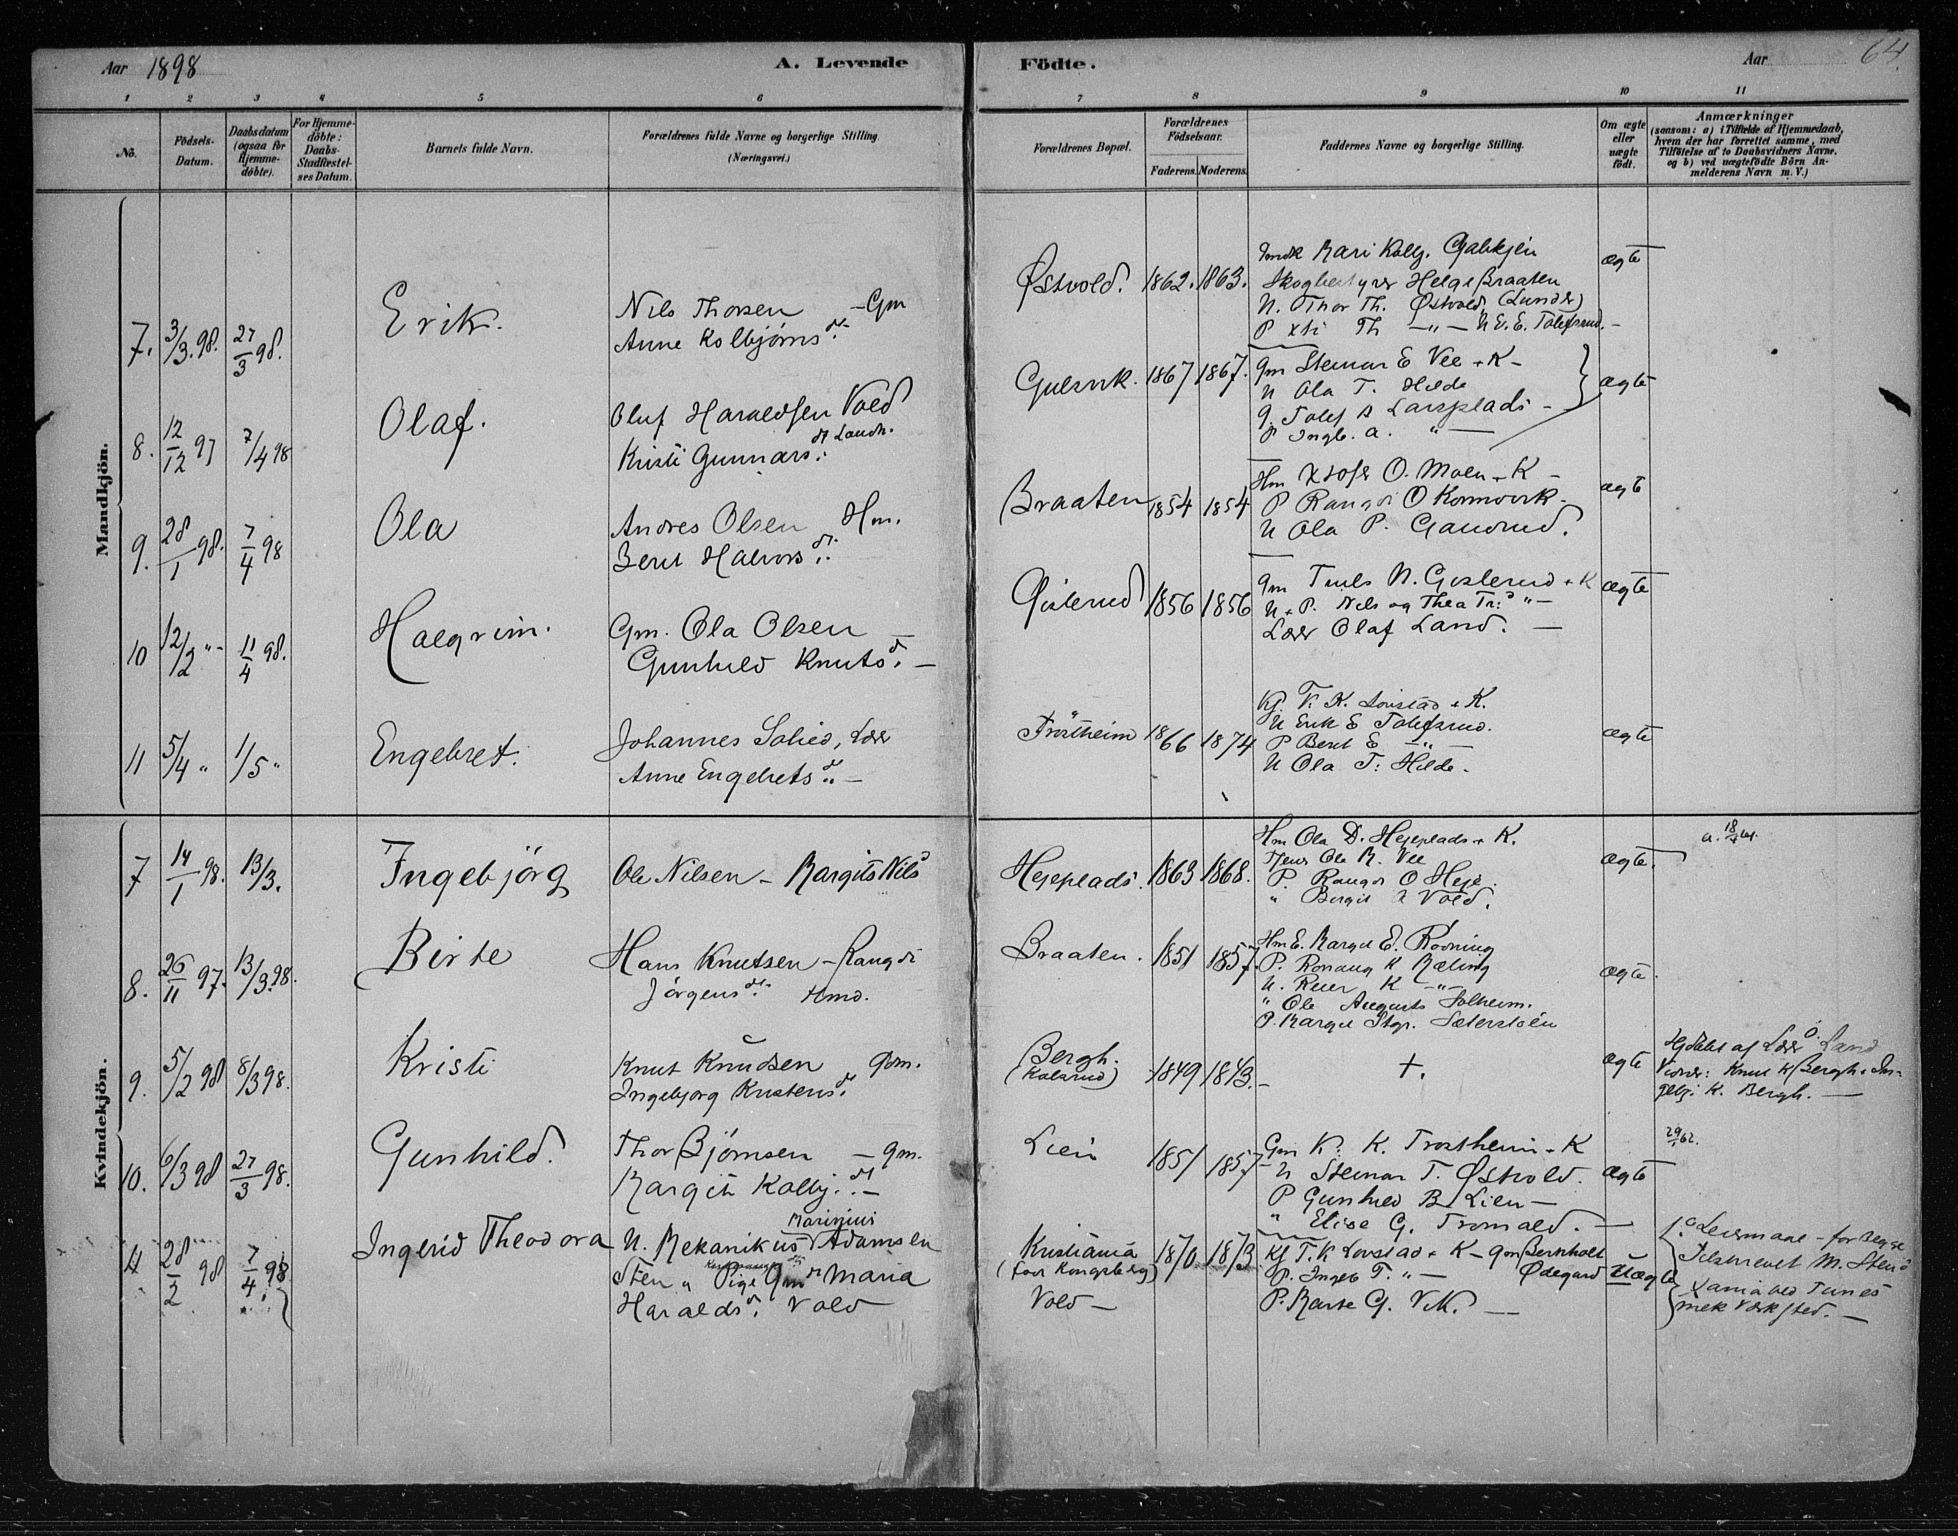 Aar 1898
A. Levende
Födte.
Aar
64
1 2 3 4 5 6 7 8 9 10 11
No.
Födsels-
Datum.
Daabsdatum
(ogsaa for
Hjemme-
döbte).
For Hjemme-
döbte:
Daabs-
Stadfæstel-
ses Datum.
Barnets fulde Navn.
Forældrenes fulde Navne og borgerlige Stilling.
(Næringsvei.)
Forældrenes Bopæl.
Forældrenes
Födselsaar.
Faderens. Moderens.
Faddernes Navne og borgerlige Stilling.
Om ægte
eller
uægte
födt.
Anmærkninger
(saasom: a) i Tilfælde af Hjemmedaab,
hvem der har forrettet samme, med
Tilföielse af to Daabsvidners Navne.
og b) ved uægtefödte Börn An-
melderens Navn m. V.)
Mandkjön.
7. 3/3. 98. 27/3 98. Erik.
Nils Thorsen — Gm
Anne Kolbjørns d.
Østvold. 1862. 1863.
Mari Kolbj.
Skogbestyrer Helge Braaten
N. Thor Th. Østvold, (Lunder)
P Th —"— U E. E. Tolefsrud. —
ægte
8. 12/12 97 7/4 98 Olaf.
Oluf Haraldsen Vold
Kristi Gunnars d.
Gulsvik. 1867 1867.
Gm Steinar E Vee + K —
U Ola T. Hilde
P Ingb. a. " —
ægte
9. 28/1 98. 7/4 98 Ola
Andres Olsen Hm.
Berit Halvors d.
Braaten 1854 1854
Hm Xtofer O. Moen + K —
P Rangdi O Kornvik —
U Ola P. Gandrud.
ægte
10 12/2 " - 11/4 98. Halgrim.
Gm. Ola Olsen —
Gunhild Knuts d. —
Gislerud 1856 1856
Gm Truls N. Gislerud + K
U + P. Nils og Thea Tr: "—
Lærer Olaf Land. —
ægte
11 5/4 " 1/5 " Engebret.
Johannes Solied, Lærer
Anne Engebrets d. —
Trostheim 1866 1874
Kj. T. K. Lovstad + K.
U Erik E Tolefsrud.
P Berit E —"—
U Ola T: Hilde.
ægte
Kvindekjön.
7 14/1 98. 13/3. Ingebjörg
Ole Nilsen — Margit Nils d
Hejeplads. 1863 1868.
Hm Ola D. Hejeplads + K.
Tjener Ole N. Vee
P. Rangdi O Heje.
" Bergit A Vold.
ægte.
8. 26/11 97. 13/3 98. Birte
Hans Knutsen — Rangdi
Jörgens d. Hmd.
Braaten. 1851 1857.
Hm E. Margit E. Rovning
P. Ronaug K Mæling
U. Reier K —"—
" Ole Augusts Solheim.
P. Margit Stgr. Sæterstöen
ægte.
9. 5/2 98 8/3 98. Kristi
Knut Knudsen Gm.
Ingebjorg Kristens d.
Bergh.
(Kolsrud) 1849 1843. —
+.
ægte
Hjdøbt af Lærer O. Land
Vidner: Knut K Bergh + In-
gebj: K. Bergh. —
10. 6/3 98 27/3 98. Gunhild.
Thor Bjørnsen — gm.
Margit Kolbj. d. —
Lien 1851 1857 —
Gm K. K. Trostheim + K
U Steinar T. Østvold.
P Gunhild B Lien —
" Elise G. Tromald. —
ægte
29/1 62.
11 28/2 98 7/4 98 Ingerid Theodora
Marinius
U. Mekanikus Adamsen
Sten " Pige Gm d Maria
Haralds d. Vold
Kristiania
(före Kongsberg)
Vold —
1870. 1873.
Kj T. K Lovstad + K — Gm Bernholt
P. Ingeb T. "— Ødegard
P. Marte G. Vik. —
Uægte
1.° Leiermaal — for begge
Tilskrevet M. Sten
Xania ved Tunes
mek Værksted. —